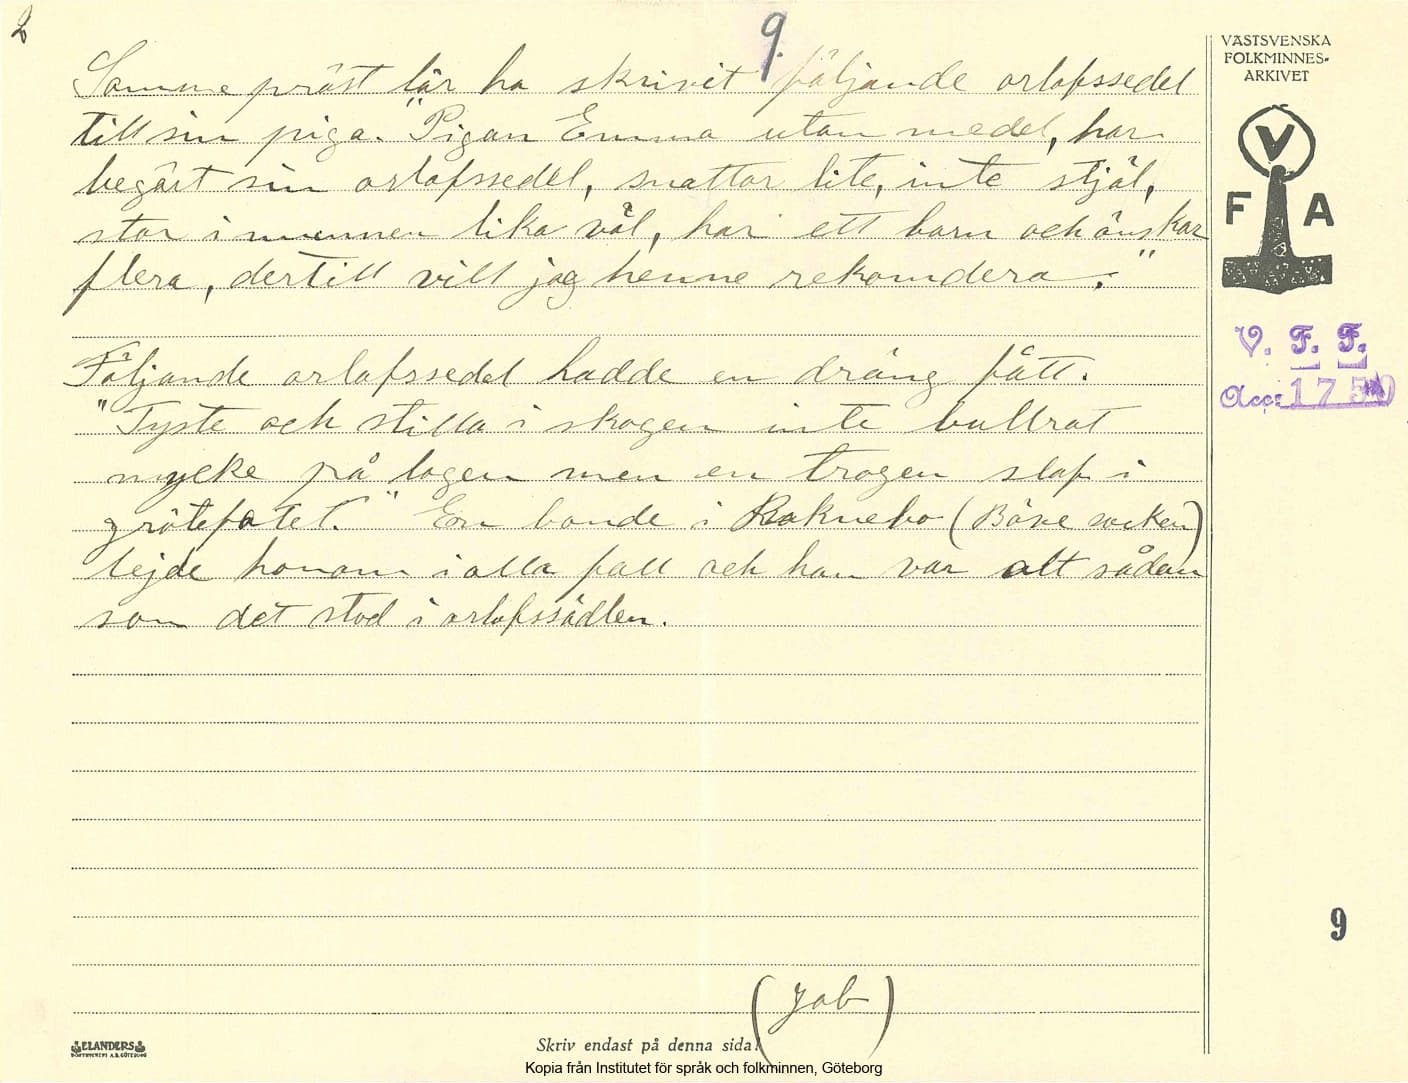 2
9.
Samme präst lär ha skrivit följande orlofssedel
till sin piga. "Pigan Emma utan medel, har
begärt sin orlofssedel, snattar lite, inte stjäl,
stor i munnen lika väl, har ett barn och önskar
flera, dertill vill jag henne rekomdera."
Följande orlofssedel hadde en dräng fått.
"Tyste och stilla i skogen inte bullrat
mycke på logen men en trogen slaf i
grötefatet." En bonde i Raknebo (Bäve socken)
lejde honom i alla fall och han var alt sådan
som det stod i orlofssädlen.
(Job)
VÄSTSVENSKA
FOLKMINNES-
ARKIVET
V
F A
V. F. F.
Acc: 1750
9
ELANDERS
BOKTRYCKERI A.B. GÖTEBORG
Skriv endast på denna sida!
Kopia från Institutet för språk och folkminnen, Göteborg